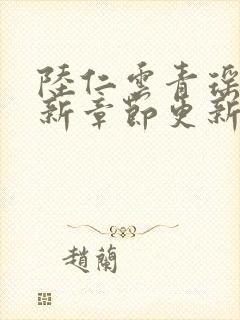 陸仁雲青瑶
新章節更新
趙蘭